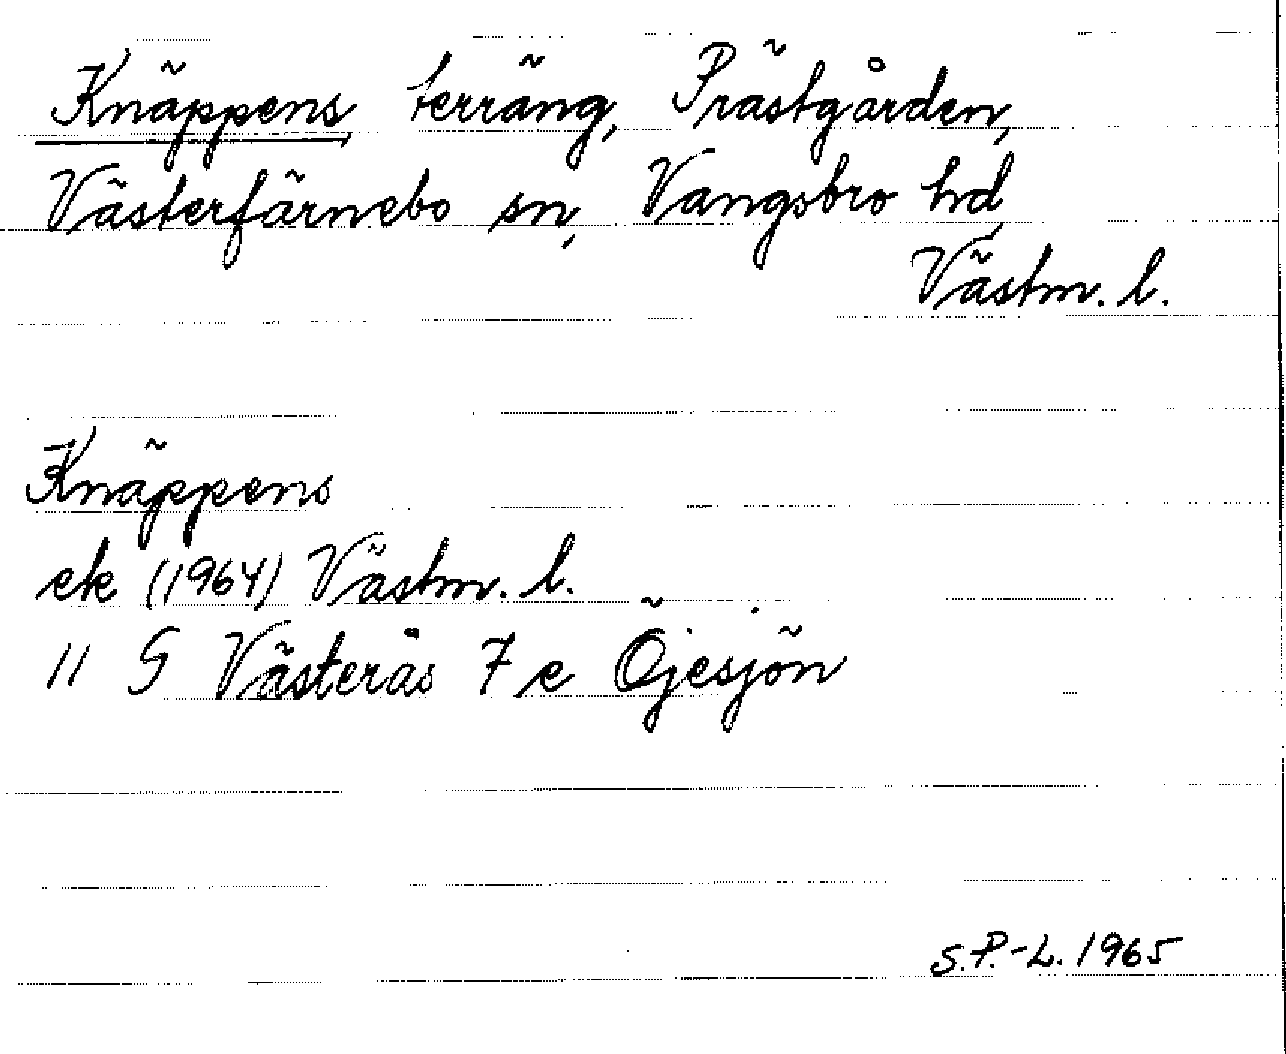 Knäppens, terräng, Prästgården,
Västerfärnebo sn, Vangsbro hd,
Västm. l.
Knäppens
ek (1964) Västm. l.
11 G Västerås 7 e Öjesjön
S.P.-L. 1965